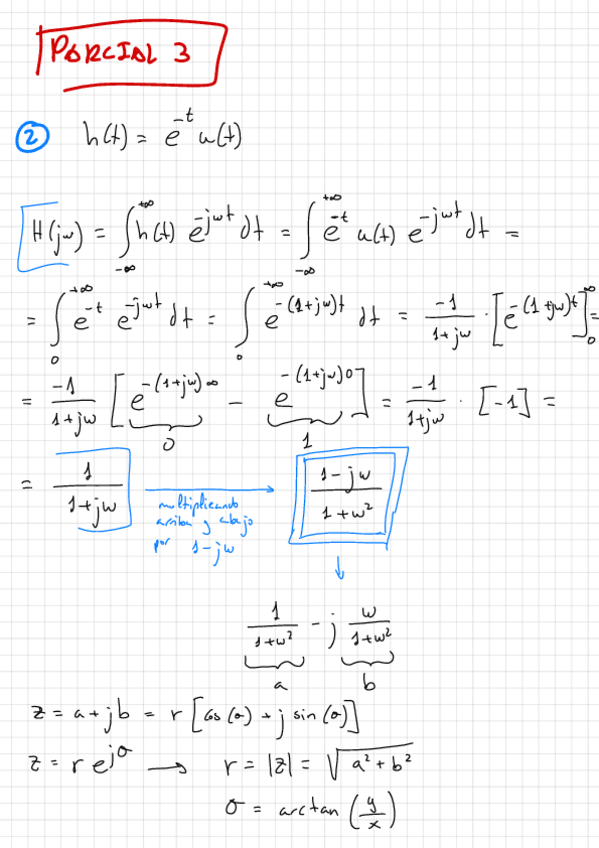 PARCIAL 3
2 h(t) = e^{-t} u(t)
H(jω) = ∫_{-∞}^{+∞} h(t) e^{-jωt} dt = ∫_{-∞}^{+∞} e^{-t} u(t) e^{-jωt} dt =
= ∫_{0}^{+∞} e^{-t} e^{-jωt} dt = ∫_{0}^{+∞} e^{-(1+jω)t} dt = \frac{-1}{1+jω} · [e^{-(1+jω)t}]_{0}^{∞} =
= \frac{-1}{1+jω} [e^{-(1+jω)∞} - e^{-(1+jω)0}] = \frac{-1}{1+jω} · [-1] =
0 1
= \frac{1}{1+jω} → \frac{1-jω}{1+ω^2}
multiplicando
arriba y abajo
por 1-jω
↓
\frac{1}{1+ω^2} - j \frac{ω}{1+ω^2}
a b
z = a+jb = r [cos(σ) + j sin(σ)]
z = r e^{jσ} → r = |z| = √{a^2+b^2}
σ = arctan (\frac{y}{x})